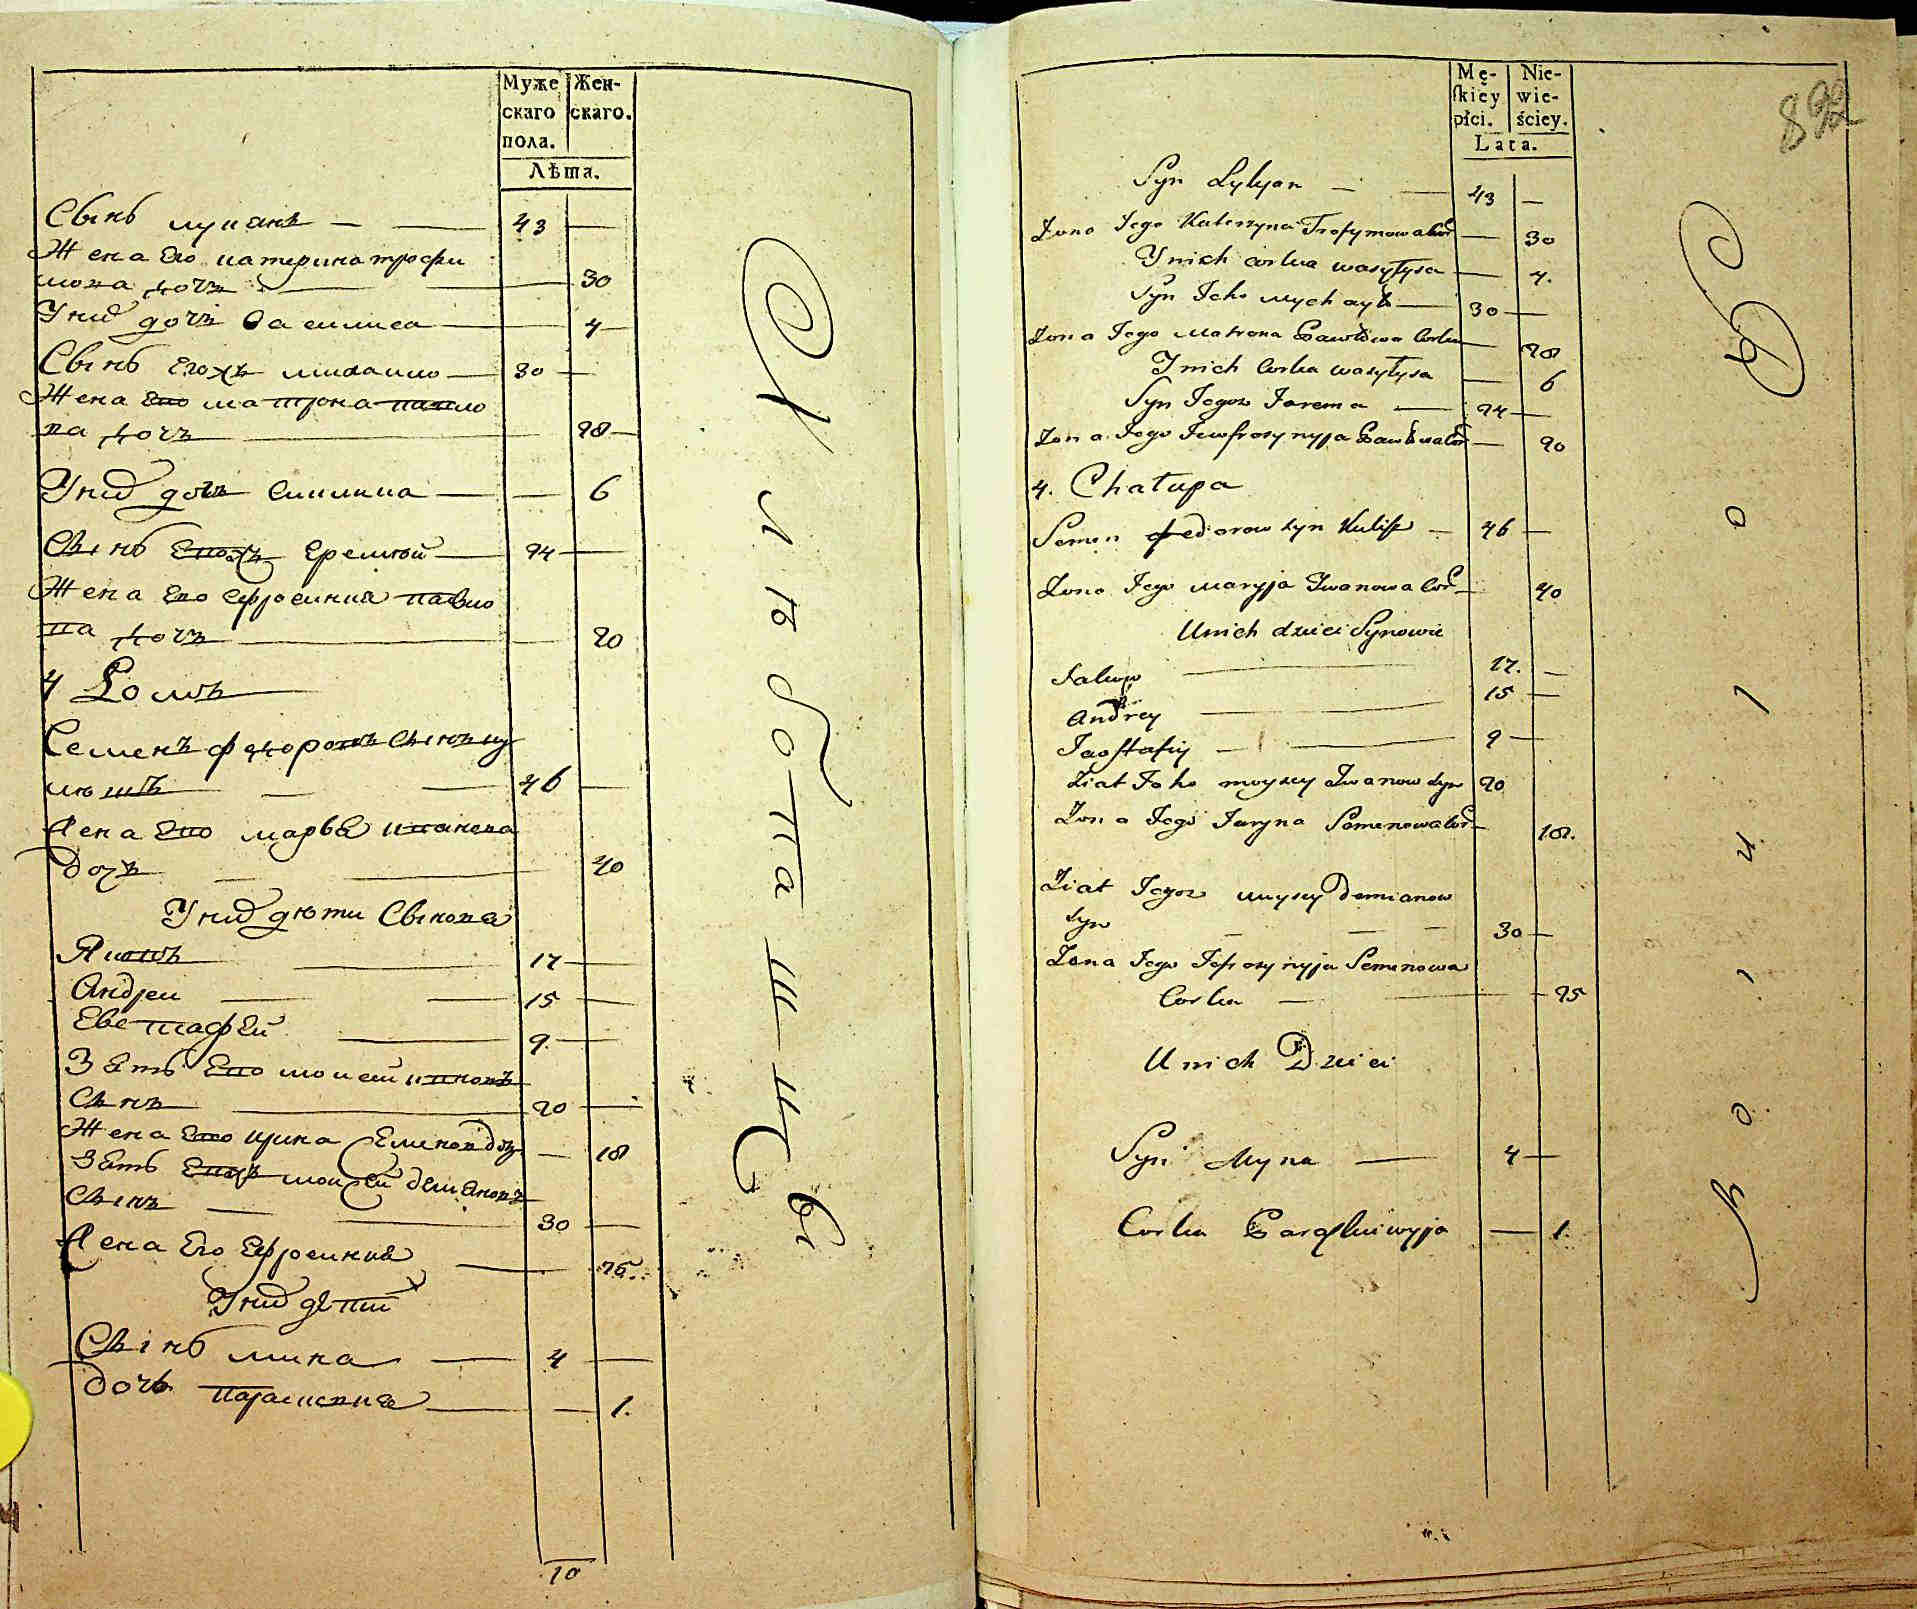 Муже
скаго
пола.
Жен-
скаго.
Лѣта.
Сынъ лукянъ 43
Жена Его катерина трофи
мова дочъ 30
Унихъ дочъ Василиса 4
Сынъ Егожъ михаило 30
Жена Его матрона павло
ва дочъ 28
Унихъ дочъ 6
Сынъ Егожъ Еремѣй 24
Жена Его Ефросиния павло
ва дочъ 20
4 Домъ
Семенъ федоровъ сынъ ку
лѣшъ 46
Жена Его маръя иванова
дочъ 40
Унихъ дѣти Сынова
Якимъ 17
Андреи 15
Евстафей 9
Зять Его моисеи ивановъ
Сынъ 20
Жена Его ирина Семенова дочъ 18
Зять Егожъ моисей демяновъ
Сынъ 30
Жена Его Ефросиния 25
Унихъ дѣти
Сынъ мина 4
дочъ параскевия 1.
10
892
Mę-
skiey
płci.
Nie-
wie-
ściey.
Lata.
Syn Lukjan 43
Zona Jego Katerzyna Trofymowa Cor 30
Y nich corka wasylysa 4.
Syn Jeho mychayło 30
Zona Jego Matrona Pawłowa Corka 28
Y nich Corka wasylysa 6
Syn Jegoz Jarema 24
Zona Jego Jewfrosynyja Pawłowa Cor 20
4. Chałupa
Semen fedorow syn Kulisz 46
Zona Jego maryja Iwanowa Cor 40
U nich dzieci Synowie
Jakuw 17.
Andrey 15
Jaostafiy 9
Ziat Jeho moysey Iwanow syn 20
Zona Jego Jaryna Semenowa Cor 18.
Ziat Jegoz moysey Demianow
syn 30
Zona Jego Jefrosynyja Semenowa
Corka 25
U nich Dzieci
Syn Myna 4
Corka Paraskiewyja 1.